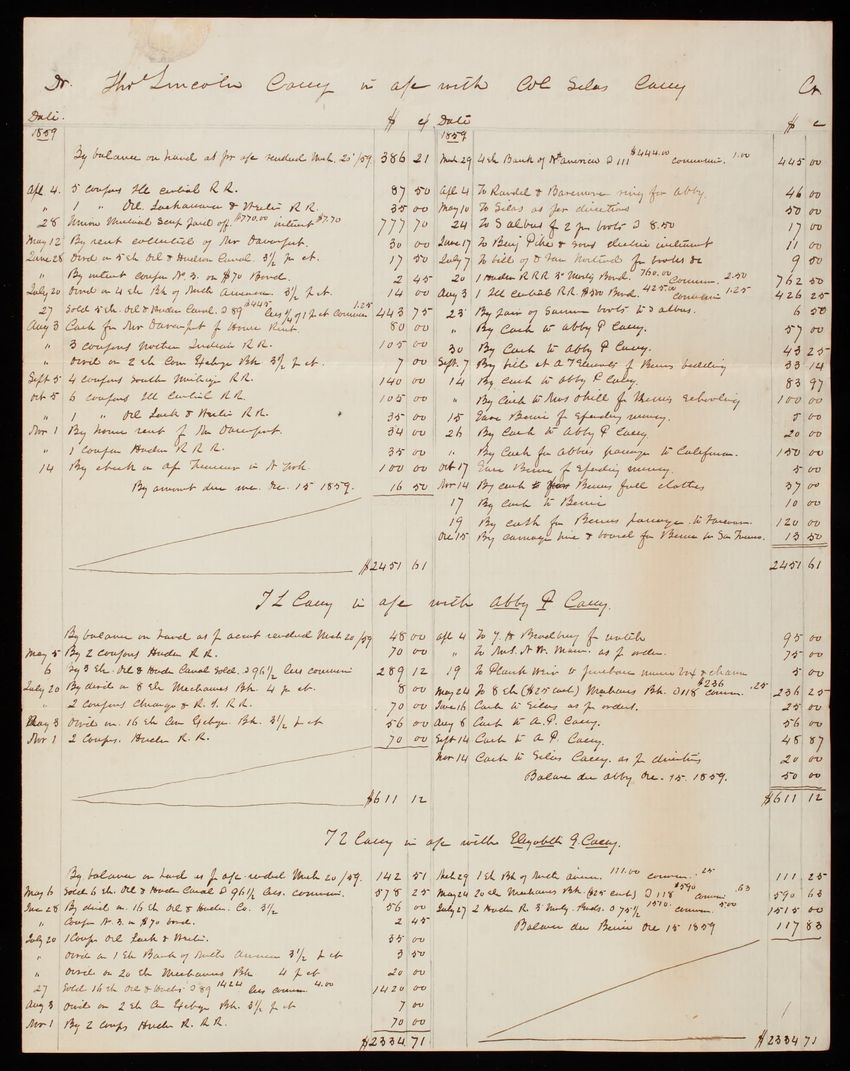 Dr. Thos Lincoln Casey in a/c with Col Silas Casey Cr
Date. $ c
1859
By balance on hand as pr a/c rendered Mch. 20/59 386 21
Apl. 4. 5 coupons Ill central R.R. 87 50
" 1 " Del. Lackawana & Westn R.R. 35 00
28 Union Mutual Scrip paid off. $770.00 interest $7.70 777 70
May 12 By rent collected of Mr Davenport. 30 00
June 28 Divd on 5 sh Del & Hudson Canal. 3½ pr ct. 17 50
" By interest coupon No 3. on $70 Bond. 2 45
July 20 Divd on 4 sh Bk of North America. 3½ p ct. 14 00
27 Sold 5 sh. Del & Hudn Canal. @ 89 $445 less ¼ of 1 p ct commn 1.25 443 75
Aug 3 Cash fm Mr Davenport f House Rent. 80 00
" 3 coupons Northn Indiana R.R. 105 00
" Divd on 2 sh Com Exchge Bk. 3½ p ct. 7 00
Sept 5 4 coupons South Michign R.R. 140 00
Oct 5 6 coupons Ill Central R.R. 105 00
" 1 " Del Lack & Westn R.R. 35 00
Nov 1 By house rent f Mr Davenport. 34 00
" 1 Coupon Hudson R.R.R. 35 00
14 By check on Treasurer in N York. 100 00
By amount due me. Dec. 15 1859. 16 50
$2451 61
Date $ c
1859
Mch 29 4 sh Bank of No America @ 111 $444.00 commission. 1.00 445 00
Apl 4 To Randel & Baremore ring for Abby. 46 00
May 10 To Silas as per directions 50 00
24 To S albus f 2 prs boots @ 8.50 17 00
June 17 To Benj Pike & Sons electric instrument 11 00
July 7 To bill of D Van Nostrand for books &c 9 50
20 1 Hudson R R R 3d Mortg Bond. $760.00 Commn. 2.50 762 50
Aug 3 1 Ill Central R.R. $500 Bond. 425.00 commission 1.25 426 25
23 By pair of boots to S albus. 6 50
" By Cash to Abby P Casey. 57 00
30 By Cash to Abby P Casey. 43 25
Sept. 7 By bill of A T Stewart f Bessies bedding 33 14
14 By Cash to Abby P Casey. 83 97
" By Cash to Mrs Okill f Bessies Schooling 100 00
15 Gave Bessie f spending money. 5 00
26 By Cash to Abby P Casey 20 00
" By Cash for Abbies passage to California. 150 00
Oct 17 Gave Bessie f spending money. 5 00
Nov 14 By cash Bessies fall clothes 37 00
17 By Cash to Bessie 10 00
19 By cash for Bessies passage to 120 00
Dec 15 By carriage hire & board for Bessie 13 50
2451 61
T L Casey in a/c with Abby P Casey.
By balance on hand as p acount rendered Mch 20/59 48 00
May 5 By 2 coupons Hudsn R.R. 70 00
6 By 3 sh. Del & Hudsn Canal Sold. @ 96½ less commission 289 12
July 20 By divds on 8 sh Mechanics Bk. 4 p ct. 8 00
" 2 coupons Chicago & R.I. R.R. 70 00
Aug 3 Divds on 16 sh Com Exchge. Bk. 3½ p ct 56 00
Nov 1 2 Coups. Hudsn R.R. 70 00
$611 12
Apl 4 To J. H Bradbury for watch 95 00
" To as p order. 75 00
19 To 5 00
May 24 To 8 sh ($25 each) Mechanics Bk. @ 118 $236 commn. .25 236 25
June 16 Cash to Silas as pr orders. 25 00
Aug 8 Cash to A.P. Casey. 56 00
Sept 14 Cash to A P. Casey. 48 87
Nov 14 Cash to Silas Casey. as pr directions 20 00
Balance due Abby Dec. 15. 1859. 50 00
$611 12
T L Casey in a/c with Elizabeth G. Casey.
By balance on hand as p a/c rendrd Mch 20/59. 142 51
May 6 Sold 6 sh. Del & Hudsn Canal @ 96½ less. commission. 578 25
June 28 By divds on 16 sh Del & Hudsn. Co. 3½ 56 00
" Coupn No 3. on $70 bond. 2 45
July 20 1 Coupn Del Lack & Westn. 35 00
" Divd on 1 sh Bank of North America 3½ p ct 3 50
" Divd on 20 sh Mechanics Bk 4 p ct 20 00
27 Sold 16 sh Del & Hudsn @ 89 1424 less commn 4.00 1420 00
Aug 3 Divds on 2 sh Cn Exchge Bk. 3½ p ct 7 00
Nov 1 By 2 coups Hudsn R.R.R. 70 00
$2334 71
Mch 29 1 sh Bk of North Americ. 111.00 commn. .25 111 25
May 24 20 sh Mechanics Bk. ($25 each) @ 118 $590 commn .63 590 63
July 27 2 Hudsn R 3d Mortg. Bnds. @ 75½ 1510. commn. 5.00 1515 00
Balance due Bessie Dec 15 1859 117 83
$2334 71